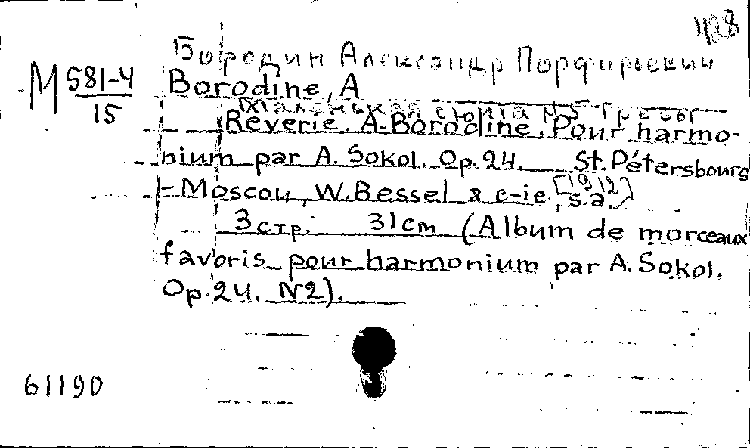 Бородин Александр Порфирьевич
М 581-4
15
Borodine, A
Маленькая сюита №5 Грезы
Rêverie. A. Borodine. Pour harmo-
nium par A. Sokol. Op. 24. St. Pétersbourg
- Moscou, W. Bessel & c-ie [1912]
s.a
3 стр. 31 см (Album de morceaux
favoris pour harmonium par A. Sokol.
Op. 24. N2).
61190